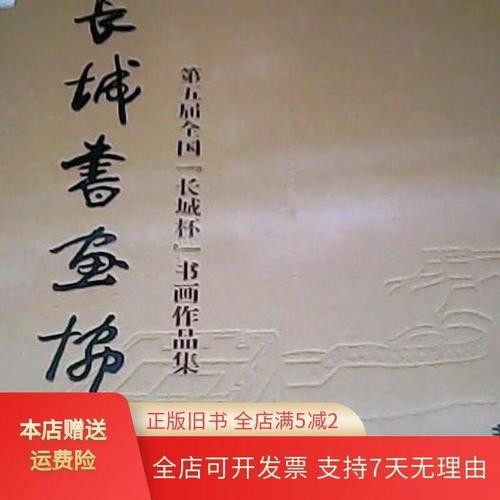 长城书画协
第五届全国『长城杯』书画作品集
本店赠送
运费险
正版旧书 全店满5减2
全店可开发票 支持7天无理由